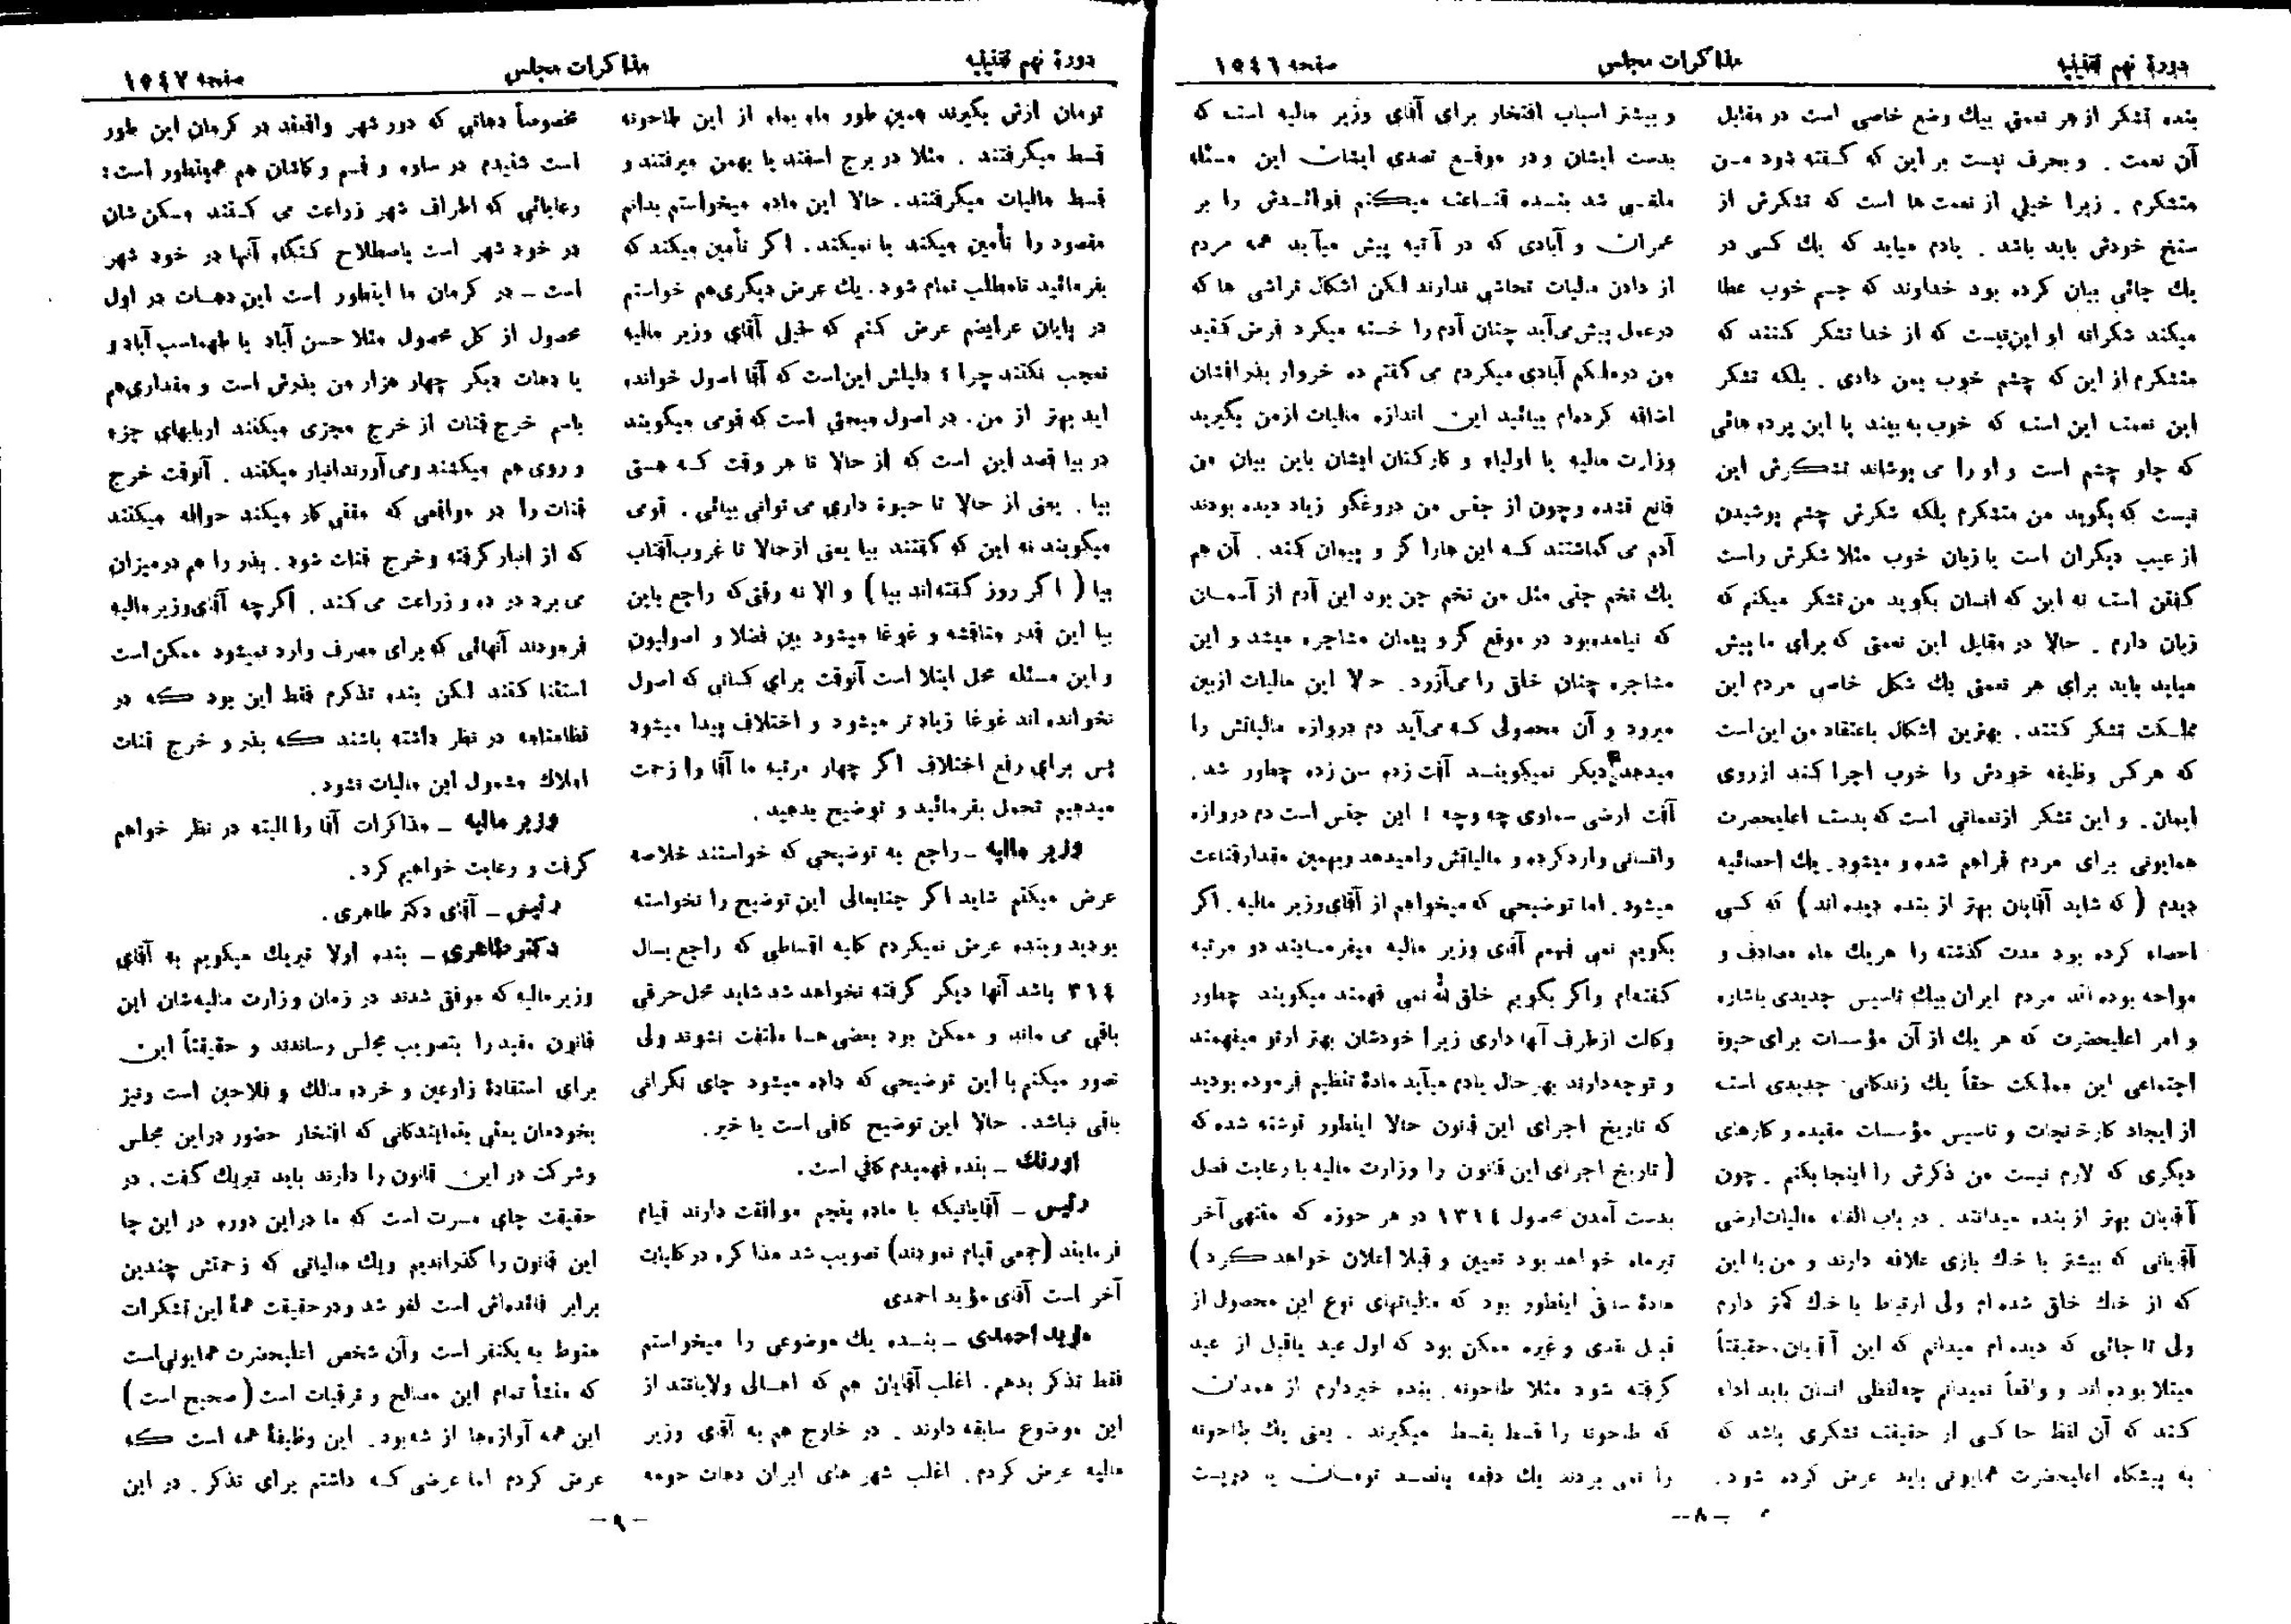 دورهٔ نهم تقنینیه
مذاکرات مجلس
صفحه ١٥٤٦
بنده تشکر از هر نعمتی بیك وضع خاصی است در مقابل
آن نعمت . و بحرف نیست بر این که گفته شود من
متشکرم . زیرا خیلی از نعمت ها است که تشکرش از
سنخ خودش باید باشد . یادم میاید که یك کسی در
یك جائی بیان کرده بود خداوند که چشم خوب عطا
میکند شکرانه او این‌نیست که از خدا تشکر کنند که
متشکرم از این که چشم خوب بمن دادی . بلکه تشکر
این نعمت این است که خوب به بیند یا این پرده هائی
که جلو چشم است و او را می پوشاند تشکرش این
نیست که بگوید من متشکرم بلکه شکرش چشم پوشیدن
از عیب دیگران است یا زبان خوب مثلا شکرش راست
گفتن است نه این که انسان بگوید من تشکر میکنم که
زبان دارم . حالا در مقابل این نعمتی که برای ما پیش
میاید باید برای هر نعمتی یك شکل خاصی مردم این
مملکت تشکر کنند . بهترین اشکال باعتقاد من این است
که هر کس وظیفه خودش را خوب اجرا کند از روی
ایمان . و این تشکر از نعماتی است که بدست اعلیحضرت
همایونی برای مردم فراهم شده و میشود . یك احصائیه
دیدم ( که شاید آقایان بهتر از بنده دیده اند ) که کسی
احصاء کرده بود مدت گذشته را هر یك ماه مصادف و
مواجه بوده اند مردم ایران بیك تاسیس جدیدی باشاره
و امر اعلیحضرت که هر یك از آن مؤسسات برای حیوة
اجتماعی این مملکت حقاً یك زندگانی جدیدی است
از ایجاد کارخانجات و تاسیس مؤسسات مفیده و کارهای
دیگری که لازم نیست من ذکرش را اینجا بکنم . چون
آقایان بهتر از بنده میدانند . در باب الغاء مالیات ارضی
آقایانی که بیشتر با خاك بازی علاقه دارند و من با این
که از خاك خلق شده ام ولی ارتباط با خاك کمتر دارم
ولی تا جائی که دیده ام میدانم که این آقایان حقیقتاً
مبتلا بوده اند و واقعاً نمیدانم چه لفظی انسان باید اداء
کند که آن لفظ حاکی از حقیقت تشکری باشد که
به پیشگاه اعلیحضرت همایونی باید عرض کرده شود .
و بیشتر اسباب افتخار برای آقای وزیر مالیه است که
بدست ایشان و در موقع تصدی ایشان این مسئله
ملغی شد بنده قناعت میکنم فوائدش را بر
عمران و آبادی که در آتیه پیش میآید همه مردم
از دادن مالیات تحاشی ندارند لکن اشکال تراشی ها که
در عمل پیش می‌آید چنان آدم را خسته میکرد فرض کنید
من در ملکم آبادی میکردم می گفتم ده خروار بذر افشان
اضافه کرده‌ام بیائید این اندازه مالیات از من بگیرید
وزارت مالیه یا اولیاء و کارکنان ایشان باین بیان من
قانع نشده و چون از جنس من دروغگو زیاد دیده بودند
آدم می گماشتند که این ها را گز و پیمان کند . آن هم
یك تخم جنی مثل من تخم جن بود این آدم از آسمان
که نیامده‌بود در موقع گز و پیمان مشاجره میشد و این
مشاجره چنان خلق را می‌آزرد . حالا این مالیات از بین
میرود و آن محصولی که می‌آید دم دروازه مالیاتش را
میدهد دیگر نمیگویند آفت زده سن زده چطور شد .
آفت ارضی سماوی چه و چه ! این جنس است دم دروازه
وانسانی وارد کرده و مالیاتش را میدهد و بهمین مقدار قناعت
میشود . اما توضیحی که میخواهم از آقای وزیر مالیه . اگر
بگویم نمی فهمم آقای وزیر مالیه میفرمایند دو مرتبه
گفته‌ام و اگر بگویم خلق الله نمی فهمند میگویند چطور
وکالت از طرف آنها داری زیرا خودشان بهتر از تو میفهمند
و توجه دارند بهر حال یادم میآید مادهٔ تنظیم فرموده بودید
که تاریخ اجرای این قانون حالا اینطور نوشته شده که
( تاریخ اجرای این قانون را وزارت مالیه با رعایت فصل
بدست آمدن محصول ١٣١٤ در هر حوزه که منتهی آخر
تیر ماه خواهد بود تعیین و قبلا اعلان خواهد کرد )
مادهٔ سابق اینطور بود که مالیاتهای نوع این محصول از
قبیل نقدی و غیره ممکن بود که اول عید یا قبل از عید
گرفته شود مثلا طاحونه . بنده خبر دارم از همدان
که طاحونه را قسط بقسط میگیرند . یعنی یك طاحونه
را نمی بردند یك دفعه پانصد تومان یا دویست
ـ ٨ ـ
دورهٔ نهم تقنینیه
مذاکرات مجلس
صفحه ١٥٤٧
تومان ازش بگیرند همین طور ماه بماه از این طاحونه
قسط میگرفتند . مثلا در برج اسفند یا بهمن میرفتند و
قسط مالیات میگرفتند . حالا این ماده میخواستم بدانم
مقصود را تأمین میکند یا نمیکند . اگر تأمین میکند که
بفرمائید تا مطلب تمام شود . یك عرض دیگری هم خواستم
در پایان عرایضم عرض کنم که خیلی آقای وزیر مالیه
تعجب نکنند چرا ؟ دلیلش این است که آقا اصول خوانده
اید بهتر از من . در اصول مبحثی است که قومی میگویند
در بیا قصد این است که از حالا تا هر وقت که هستی
بیا . یعنی از حالا تا حیوة داری می توانی بیائی . قومی
میگویند نه این که گفتند بیا یعنی از حالا تا غروب آفتاب
بیا ( اگر روز گفته‌اند بیا ) و الا نه وقتی که راجع باین
بیا این قدر مناقشه و غوغا میشود بین فضلا و اصولیون
و این مسئله محل ابتلا است آنوقت برای کسانی که اصول
نخوانده اند غوغا زیادتر میشود و اختلاف پیدا میشود
پس برای رفع اختلاف اگر چهار مرتبه ما آقا را زحمت
میدهیم تحمل بفرمائید و توضیح بدهید .
وزیر مالیه ـ راجع به توضیحی که خواستند خلاصه
عرض میکنم شاید اگر جنابعالی این توضیح را نخواسته
بودید و بنده عرض نمیکردم کلیه اقساطی که راجع بسال
٣١٤ باشد آنها دیگر گرفته نخواهد شد شاید محل حرفی
باقی می ماند و ممکن بود بعضی ها ملتفت نشوند ولی
تصور میکنم با این توضیحی که داده میشود جای نگرانی
باقی نباشد . حالا این توضیح کافی است یا خیر .
اورنگ ـ بنده فهمیدم کافی است .
رئیس ـ آقایانیکه با ماده پنجم موافقت دارند قیام
فرمایند (جمعی قیام نمودند) تصویب شد مذاکره در کلیات
آخر است آقای مؤید احمدی
مؤید احمدی ـ بنده یك موضوعی را میخواستم
فقط تذکر بدهم . اغلب آقایان هم که اهالی ولایاتند از
این موضوع سابقه دارند . در خارج هم به آقای وزیر
مالیه عرض کردم . اغلب شهر های ایران دهات حومه
مخصوصاً دهاتی که دور شهر واقعند در کرمان این طور
است شنیدم در ساوه و قم و کاشان هم همینطور است :
رعایائی که اطراف شهر زراعت می کنند مسکن شان
در خود شهر است باصطلاح کنگاه آنها در خود شهر
است ـ در کرمان ما اینطور است این دهات در اول
محصول از کل محصول مثلا حسن آباد یا طهماسب آباد و
یا دهات دیگر چهار هزار من بذرش است و مقداری هم
باسم خرج قنات از خرج مجزی میکنند اربابهای جزء
و روی هم میکنند و می آورند انبار میکنند . آنوقت خرج
قنات را در مواقعی که مقنی کار میکند حواله میکنند
که از انبار گرفته و خرج قنات شود . بذر را هم در میزان
می برد در ده و زراعت می کند . اگر چه آقای وزیر مالیه
فرمودند آنهائی که برای مصرف وارد نمیشود ممکن است
استثنا کنند لکن بنده تذکرم فقط این بود که در
نظامنامه در نظر داشته باشند که بذر و خرج قنات
املاك مشمول این مالیات نشود .
وزیر مالیه ـ مذاکرات آقا را البته در نظر خواهم
گرفت و رعایت خواهیم کرد .
رئیس ـ آقای دکتر طاهری .
دکتر طاهری ـ بنده اولا تبریك میگویم به آقای
وزیر مالیه که موفق شدند در زمان وزارت مالیه‌شان این
قانون مفید را بتصویب مجلس رساندند و حقیقتاً این
برای استفادهٔ زارعین و خرده مالك و فلاحین است و نیز
بخودمان یعنی بنمایندگانی که افتخار حضور در این مجلس
و شرکت در این قانون را دارند باید تبریك گفت . در
حقیقت جای مسرت است که ما در این دوره در این جا
این قانون را گذراندیم و یك مالیاتی که زحمتش چندین
برابر فائده‌اش است لغو شد و در حقیقت همهٔ این تشکرات
منوط به یکنفر است و آن شخص اعلیحضرت همایونی است
که منشأ تمام این مصالح و ترقیات است ( صحیح است )
این همه آوازه‌ها از شه بود . این وظیفهٔ همه است که
عرض کردم اما عرضی که داشتم برای تذکر . در این
ـ ٩ ـ